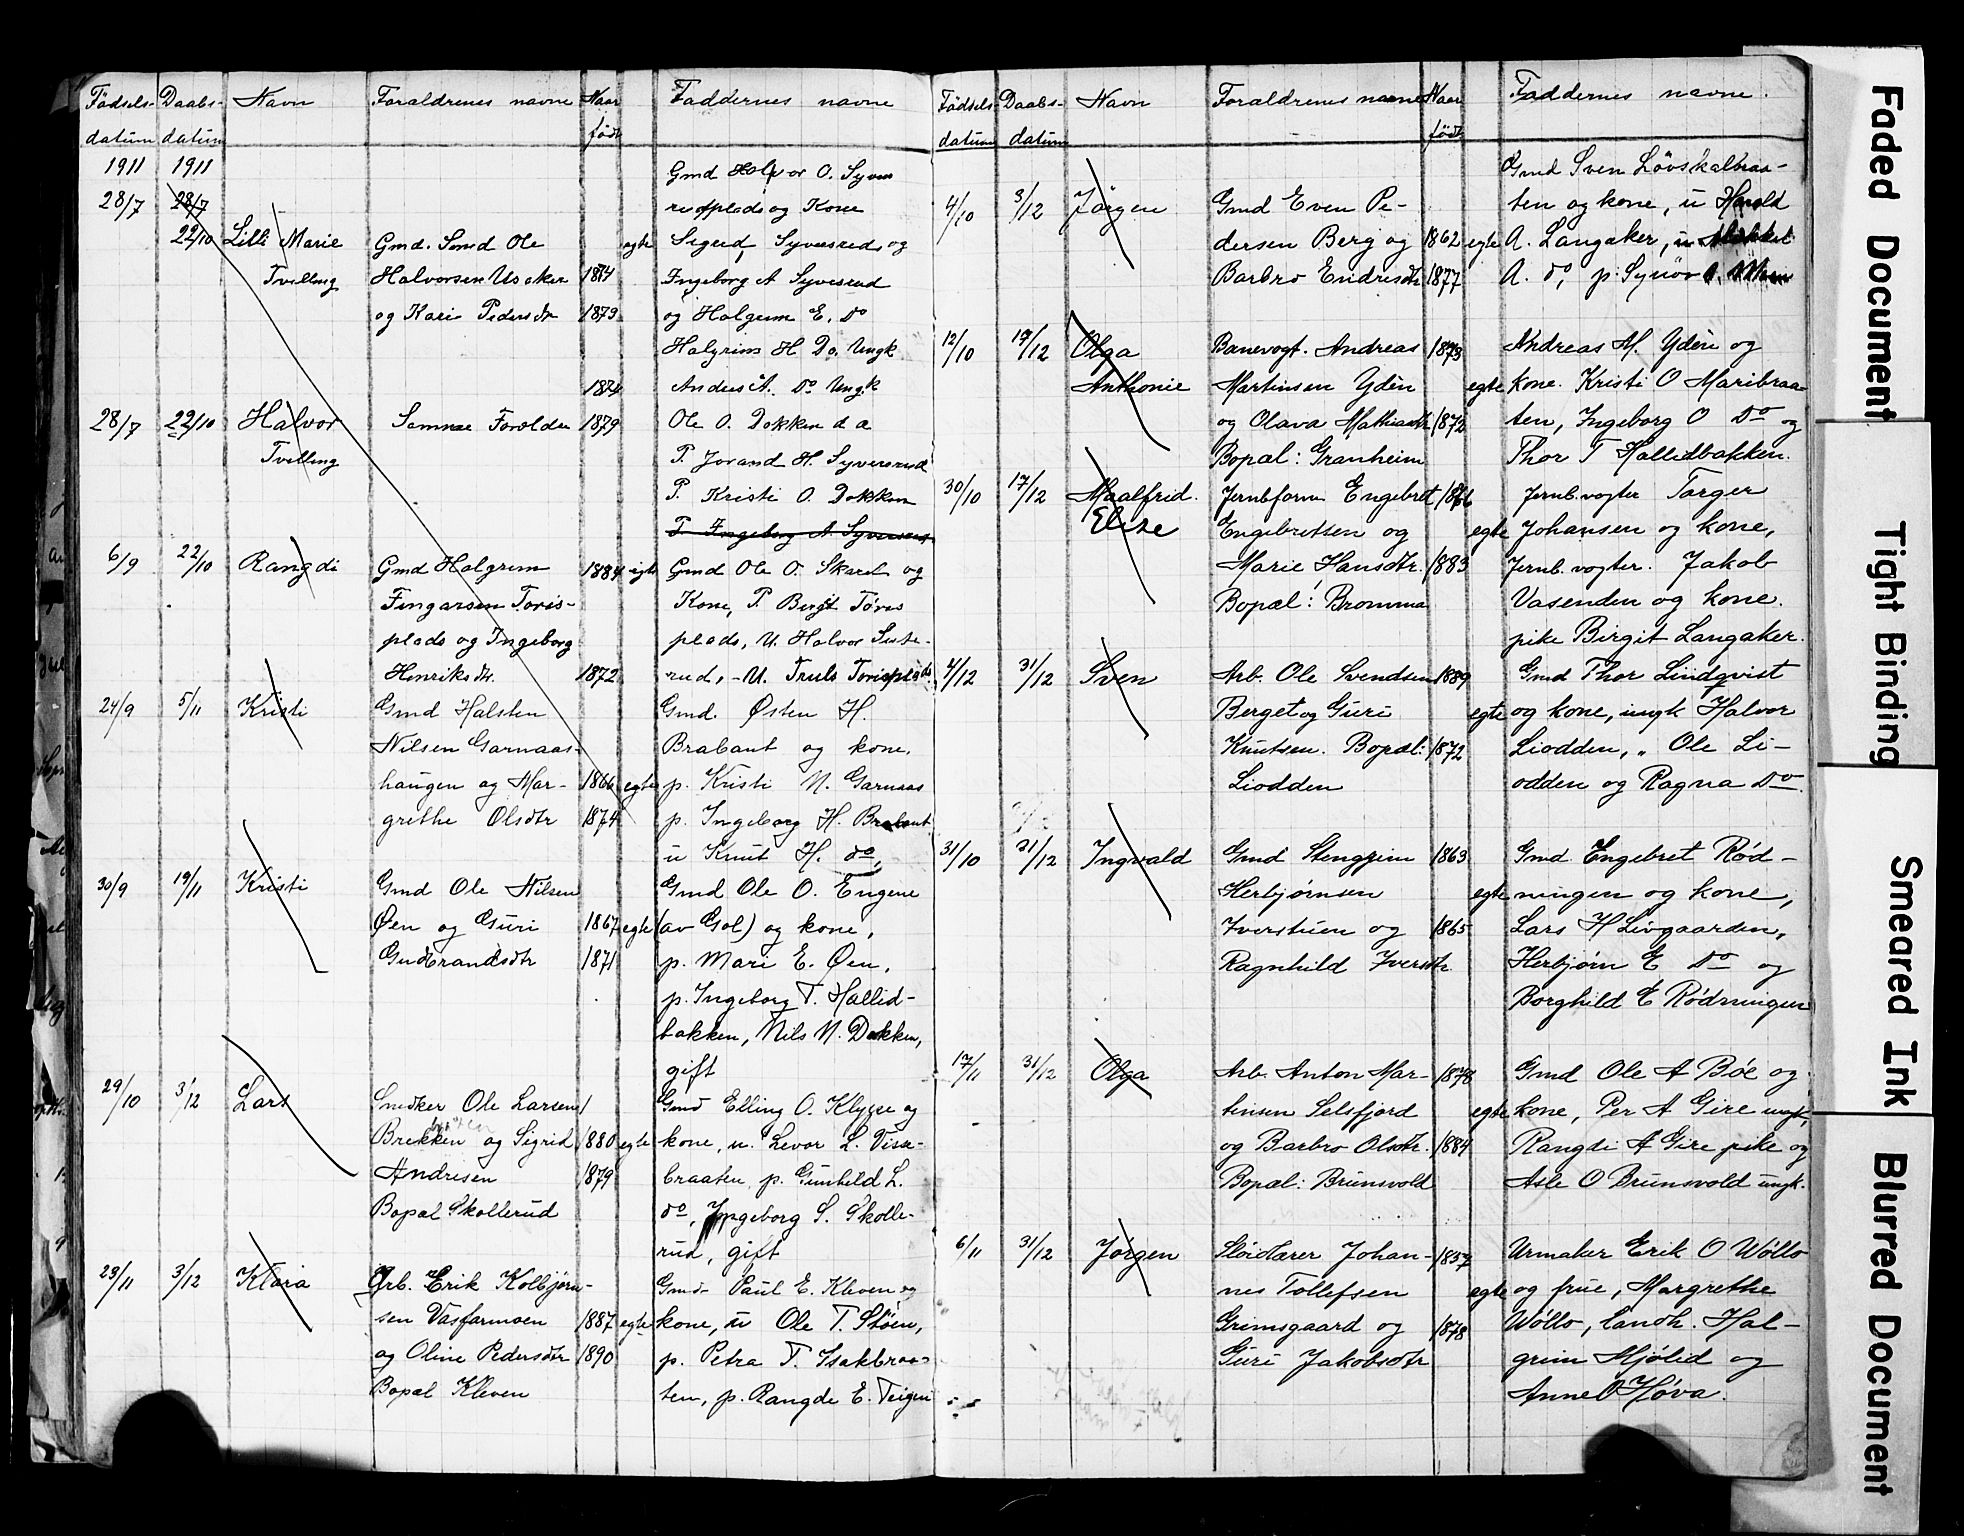 Fødsels- Daabs- Navn Foraldrenes navne Naar Faddernes navne
datum datum født
1911 1911 Gmd Halvor O. Syves
28/7 28/7 rudplads og Kone
22/10 Lilli Marie Gmd. Smd Ole egte Sigrid Syvesrud og
Tvilling Halvorsen 1874 Ingeborg A Syvesrud
og Kari Pedersdtr 1873 og Halgrim E. do
Halgrim H Do. Ungk
1874 Anders A. Do Ungk
28/7 22/10 Halvor Samme Foralder 1879 Ole O. Dokken d a
Tvilling P. Jorand H. Syversrud
P. Kristi O. Dokken
P. Ingeborg A Syversrud
6/9 22/10 Rangdi Gmd Halgrim 1884 egte Gmd Ole O. Skaret og
Fingarsen Toris- Kone, P. Bergit Tøris
plads og Ingeborg plads, U. Halvor Suste-
Henriksdtr. 1872 rud, - U. Truls Torisplads
24/9 5/11 Kristi Gmd Halsten Gmd. Østen H.
Nilsen Garnaas- Brabant og kone,
haugen og Mar- 1866 egte p. Kristi N. Garnaas
grethe Olsdtr 1874 p. Ingeborg H. Brabant
u Knut H. do,
30/9 19/11 Kristi Gmd Ole Nilsen Gmd Ole O. Engene
Øen og Guri 1867 egte (av Gol) og kone,
Gudbrandsdtr 1871 p. Mari E. Øen,
p. Ingeborg T. Hallid-
bakken, Nils N. Dokken,
gift
29/10 3/12 Lars Snedker Ole Larsen 1 Gmd Elling O. Klygge og
Brekken og Sigrid 880 egte kone, u. Levor L. Viss-
Andresen 1879 braaten, p. Gunhild L.
Bopæl Skollerud do, Ingeborg S. Skolle-
rud, gift
23/11 3/12 Klara Arb. Erik Kolbjørn- Gmd Paul E. Kleven og
sen Vasfarmoen 1887 egte kone, u Ole T. Støen,
og Oline Pedersdtr 1890 p. Petra T. Isakbraa-
Bopæl Kleven ten, p. Rangde E. Teigen
Fødsels- Daabs- Navn Foraldrenes navne Naar Faddernes navne.
datum datum født
Gmd Sven Løvskalbraa-
4/10 3/12 Jørgen Gmd Even Pe- ten og kone, u Harald
dersen Berg og 1862 egte A. Langaker, u
Barbro Endresdtr 1877 A. do, p. Synøv
12/10 19/12 Olga Banevogt. Andreas 1873 Andreas M. Yden og
Anthonie Martinsen Yden egte kone. Kristi O Maribraa-
og Olava Mathiasdtr 1872 ten, Ingeborg O Do og
Bopæl: Granheim Thor T Hallidbakken.
30/10 17/12 Maalfrid. Jernb.form Engebret 1876 Jernb.vogter Torger
Elise Engebretsen og egte Johansen og kone,
Marie Hansdtr. 1883 Jernb.vogter. Jakob
Bopæl: Bromma Vasenden og kone.
pike Birgit Langaker.
4/12 31/12 Sven Arb. Ole Svendsen 1889 Gmd Thor Lindqvist
Berget og Guri egte og kone, ungk Halvor
Knutsen. Bopæl: 1872 Liodden, " Ole Li-
Liodden odden og Ragna Do
31/10 31/12 Ingvald Gmd Stenggrim 1863 Gmd Engebret Rød-
Herbjørnsen egte ningen og kone,
Iverstuen og 1865 Lars H Livgaarden,
Ragnhild Iversdtr. Herbjørn E Do og
Borghild E Rødningen
17/11 31/12 Olga Arb. Anton Mar- 1878 Gmd Ole A Bøe og
tinsen Selsfjord egte kone, Per A Gire ungk,
og Barbro Olsdtr. 1884 Rangdi A Gire pike og
Bopæl: Brunsvold Asle O Brunsvold ungk.
6/11 31/12 Jørgen Sloidlærer Johan- 1857 Urmaker Erik O Wøllo
nes Tollefsen egte og frue, Margrethe
Grimsgaard og 1878 Wøllo, landh. Hal-
Guri Jakobsdtr grim Mjølid og
Anne O Høva.
Faded Document
Tight Binding
Smeared Ink
Blurred Document